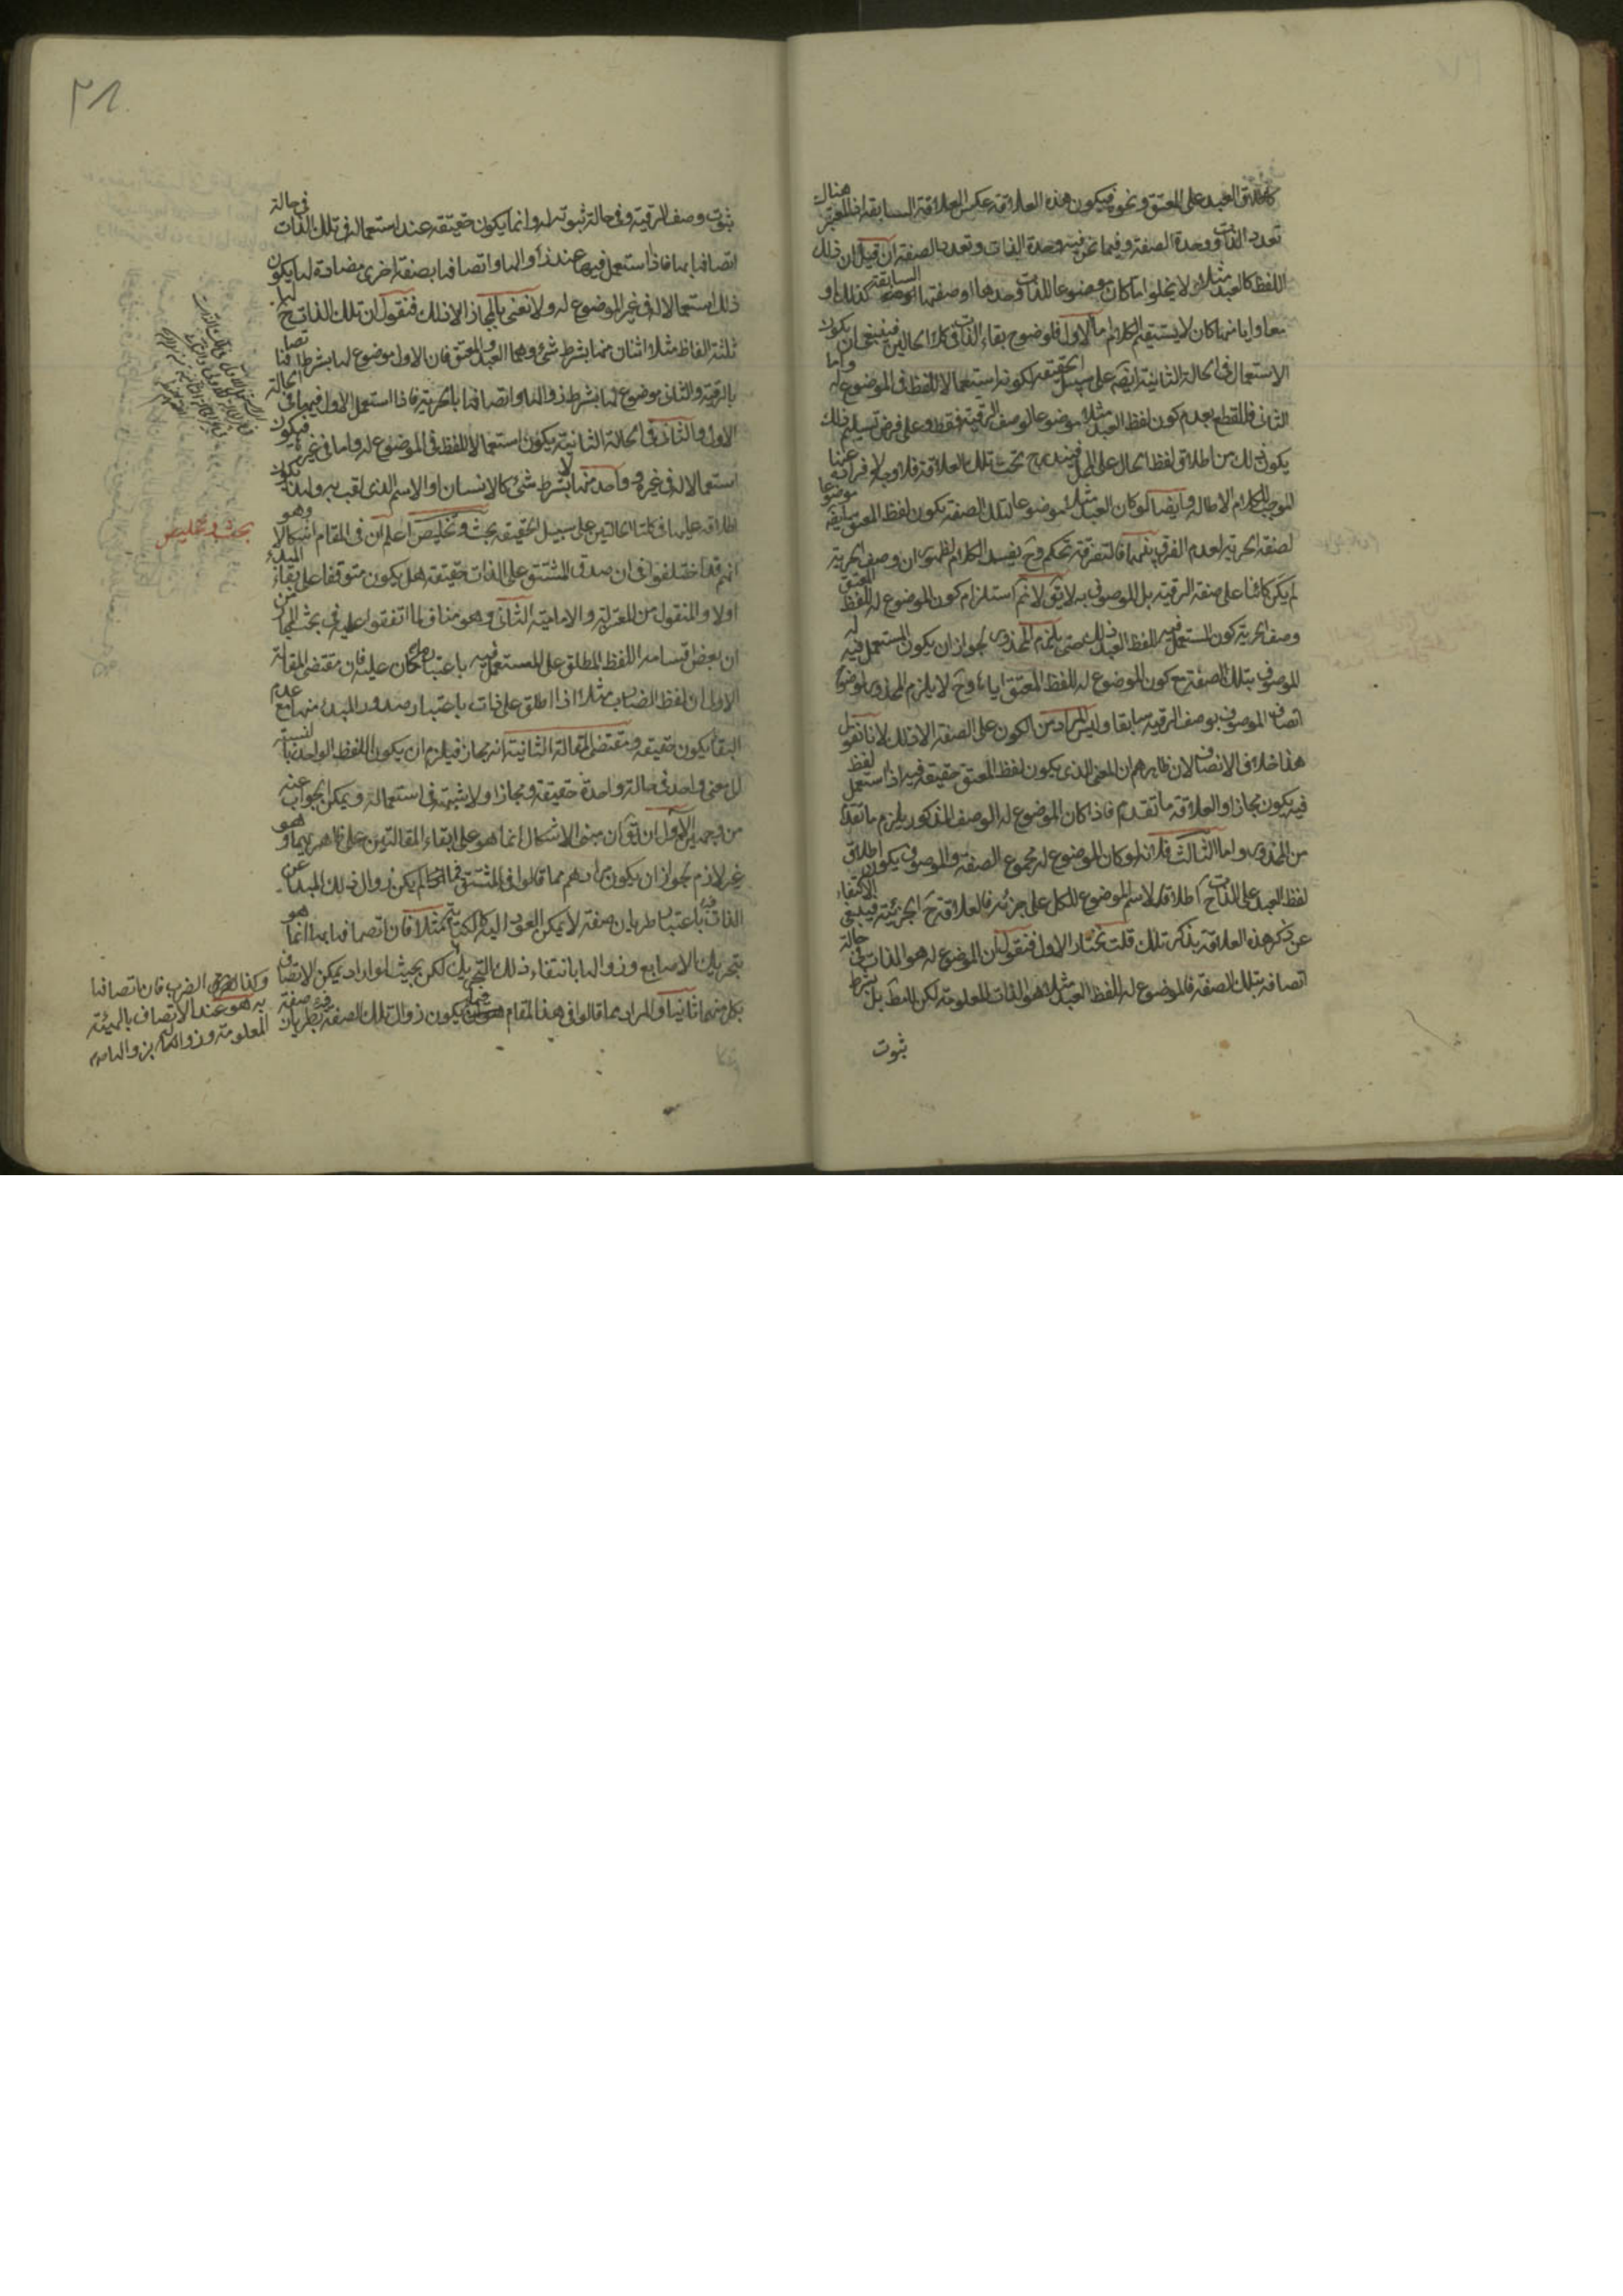 كاطلاق العبد على المعتق ونحوه فيكون هذه العلاقة عكس العلاقة السابقة اذ المعتبر هناك
تعدد الذات ووحدة الصفة وفيما نحن فيه وحدة الذات وتعدد الصفة ان قيل ان ذلك
اللفظ كالعبد مثلا لا يخلو اما كان موضوعا للذات وحدها او صفتها السابقة كذلك او
معا وايا منها كان لا يستقيم الكلام اما الاول فلوضوح بقاء الذات في كلا الحالين فينبغي ان يكون
الاستعمال في الحالة الثانية ايضا على سبيل الحقيقة لكونه استعمالا للفظ في الموضوع له واما
الثاني فللقطع بعدم كون لفظ العبد مثلا موضوعا لوصف الرقية فقط وعلى فرض تسليم ذلك
يكون ذلك من اطلاق لفظ الحال على المحل فيندرج تحت تلك العلاقة فلا وجه لافراده عنها
الموجب للكلام الاطالة وايضا لو كان العبد مثلا موضوعا لتلك الصفة يكون لفظ المعتق ايضا موضوعا
لصفة الحرية لعدم الفرق بينهما فالتفرقة تحكم وح يفسد الكلام لظهور ان وصف الحرية
لم يكن كائنا على صفة الرقية بل الموصوف به لا يق لا نم استلزام كون الموضوع له للفظ المعتق
وصف الحرية كون المستعمل فيه للفظ العبد ذلك حتى يلزم المحذور لجواز ان يكون المستعمل فيه له
الموصوف بتلك الصفة مع كون الموضوع له للفظ المعتق اياها وح لا يلزم المحذور لوضوح
اتصاف الموصوف بوصف الرقية سابقا وليس المراد من الكون على الصفة الا ذلك لانا نقول
هذا خلاف الانصاف لان ظاهرهم ان المعنى الذي يكون لفظ المعتق حقيقة فيه اذا استعمل لفظ
فيه يكون مجازا والعلاقة ما تقدم فاذا كان الموضوع له الوصف المذكور يلزم ما تقدم
من المحذور واما الثالث فلانه لو كان الموضوع له مجموع الصفة والموصوف يكون اطلاق
لفظ العبد على الذات ح اطلاقا لاسم الموضوع للكل على جزئه فالعلاقة ح الجزئية فينبغي الاكتفاء
عن ذكر هذه العلاقة بذكر تلك قلت نختار الاول فنقول ان الموضوع له هو الذات في حالة
اتصافه بتلك الصفة فالموضوع له للفظ العبد مثلا هو الذات المعلومة لكن لا مط بل بشرط
ثبوت
٢٨
ثبوت وصف الرقية وفي حالة ثبوته له وانما يكون حقيقة عند استعماله في تلك الذات في حالة
اتصافها بها فاذا استعمل فيها عند زوالها واتصافها بصفة اخرى مضادة لها يكون
ذلك استعمالا له في غير الموضوع له ولا نعني بالمجاز الا ذلك فنقول ان تلك الذات ح لها
ثلثة الفاظ مثلا اثنان منها بشرط شئ وهما العبد والمعتق فان الاول موضوع لها بشرط اتصافها
بالرقية والثاني موضوع لها بشرط زوالها واتصافها بالحرية فاذا استعمل الاول فيها في الحالة
الاولى والثاني في الحالة الثانية يكون استعمالا للفظ في الموضوع له واما في غيره فيكون
استعمالا له في غيره وواحد منها لا بشرط شئ كالانسان او الاسم الذي لقب به ولهذا يكون
اطلاقه عليها في كلتا الحالتين على سبيل الحقيقة بحث وتخليص اعلم ان في المقام اشكالا وهو
انهم قد اختلفوا في ان صدق المشتق على الذات حقيقة هل يكون متوقفا على بقاء المبدء
اولا والمنقول من المعتزلة والامامية الثاني وهو مناف لما اتفقوا عليه في بحث المجاز من
ان بعض اقسامه اللفظ المطلق على المستعمل فيه باعتبار ما كان عليه فان مقتضى المقالة
الاولى ان لفظ الضارب مثلا اذا اطلق على ذات باعتبار صدور المبدء منها مع عدم
البقاء يكون حقيقة ومقتضى المقالة الثانية انه مجاز فيلزم ان يكون اللفظ الواحد بالنسبة
الى معنى واحد في حالة واحدة حقيقة ومجازا ولا شبهة في استحالته ويمكن الجواب عنه
من وجهين الاول ان يق ان مبنى الاشكال انما هو على ابقاء المقالتين على ظاهريهما وهو
غير لازم لجواز ان يكون مرادهم مما قالوا في المشتق فيما اذا لم يكن زوال ذلك المبدأ عن
الذات باعتبار طريان صفة لا يمكن العود اليه كالكتابة مثلا فان اتصافها بها انما هو
بتحريك الاصابع وزوالها بانتفاء ذلك التحريك لكن بحيث لو اراد يمكن الاتصاف
بكل منهما ثانيا والمراد مما قالوا في هذا المقام فيما يكون زوال تلك الصفة بطريان صفة
بحث وتخليص
وكذا الضرب فان اتصافها
به هو عند الاتصاف بالهيئة
المعلومة وزواله بزوالها